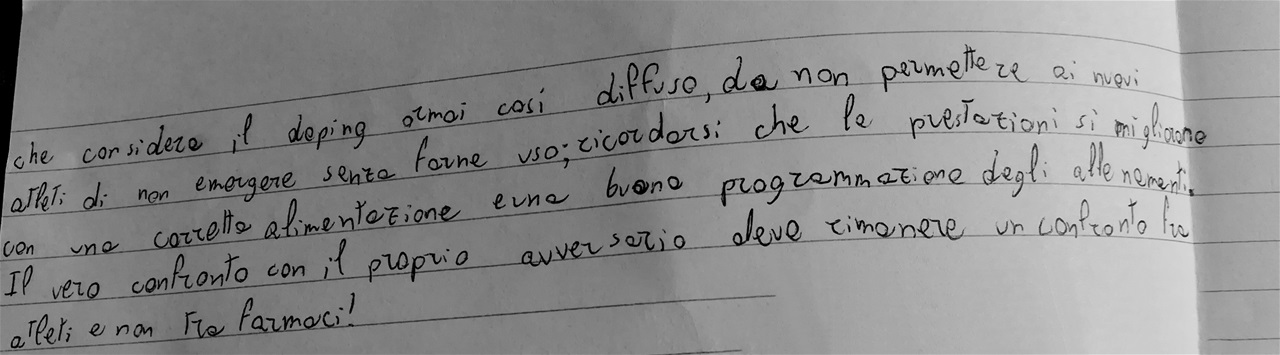 che considera il doping ormai così diffuso, da non permettere ai nuovi
atleti di non emergere senza farne uso; ricordarsi che le prestazioni si migliorano
con una corretta alimentazione e una buona programmazione degli allenamenti.
Il vero confronto con il proprio avversario deve rimanere un confronto fra
atleti e non fra farmaci!